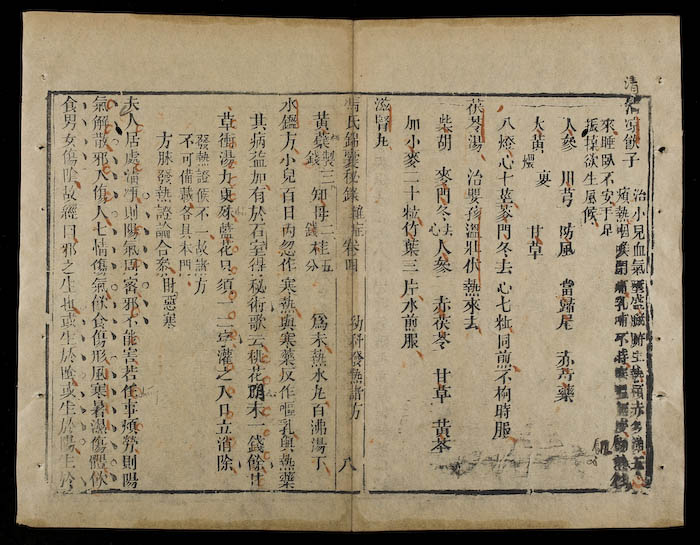 清涼飲子
治小兒血氣
煩熱
來睡臥不安手足
振掉欲生風候
人參 川芎 防風 當歸尾 赤芍藥
大黃煨 甘草
八燈心十莖麥門冬去心七粒同煎不拘時服
茯苓湯 治嬰孩溫壯伏熱來去
柴胡 麥門冬去心 人參 赤茯苓 甘草 黃芩
加小麥二十粒竹葉三片水煎服
滋腎丸
馮氏錦囊秘錄 雜症卷四 幼科發熱諸方 八
黃蘗製三錢 知母二錢 桂五分 為末熱水丸百沸湯下
水鑑方小兒百日內忽作寒熱與寒藥反作嘔乳與熱藥
其病益加有於石室得秘術歌云桃花明末一錢餘甘
草衝湯力更殊藍花只須一二字灌之入口立消除
發熱證候不一故諸方
不可備載各具本門
方脉發熱證論合參附惡寒
夫人居處清淨則陽氣固密邪不能害若任事煩勞則陽
氣解散邪乃傷人七情傷氣飲食傷形風寒暑濕傷體飲
食男女傷陰故經曰邪之生也或生於陰或生於陽生於